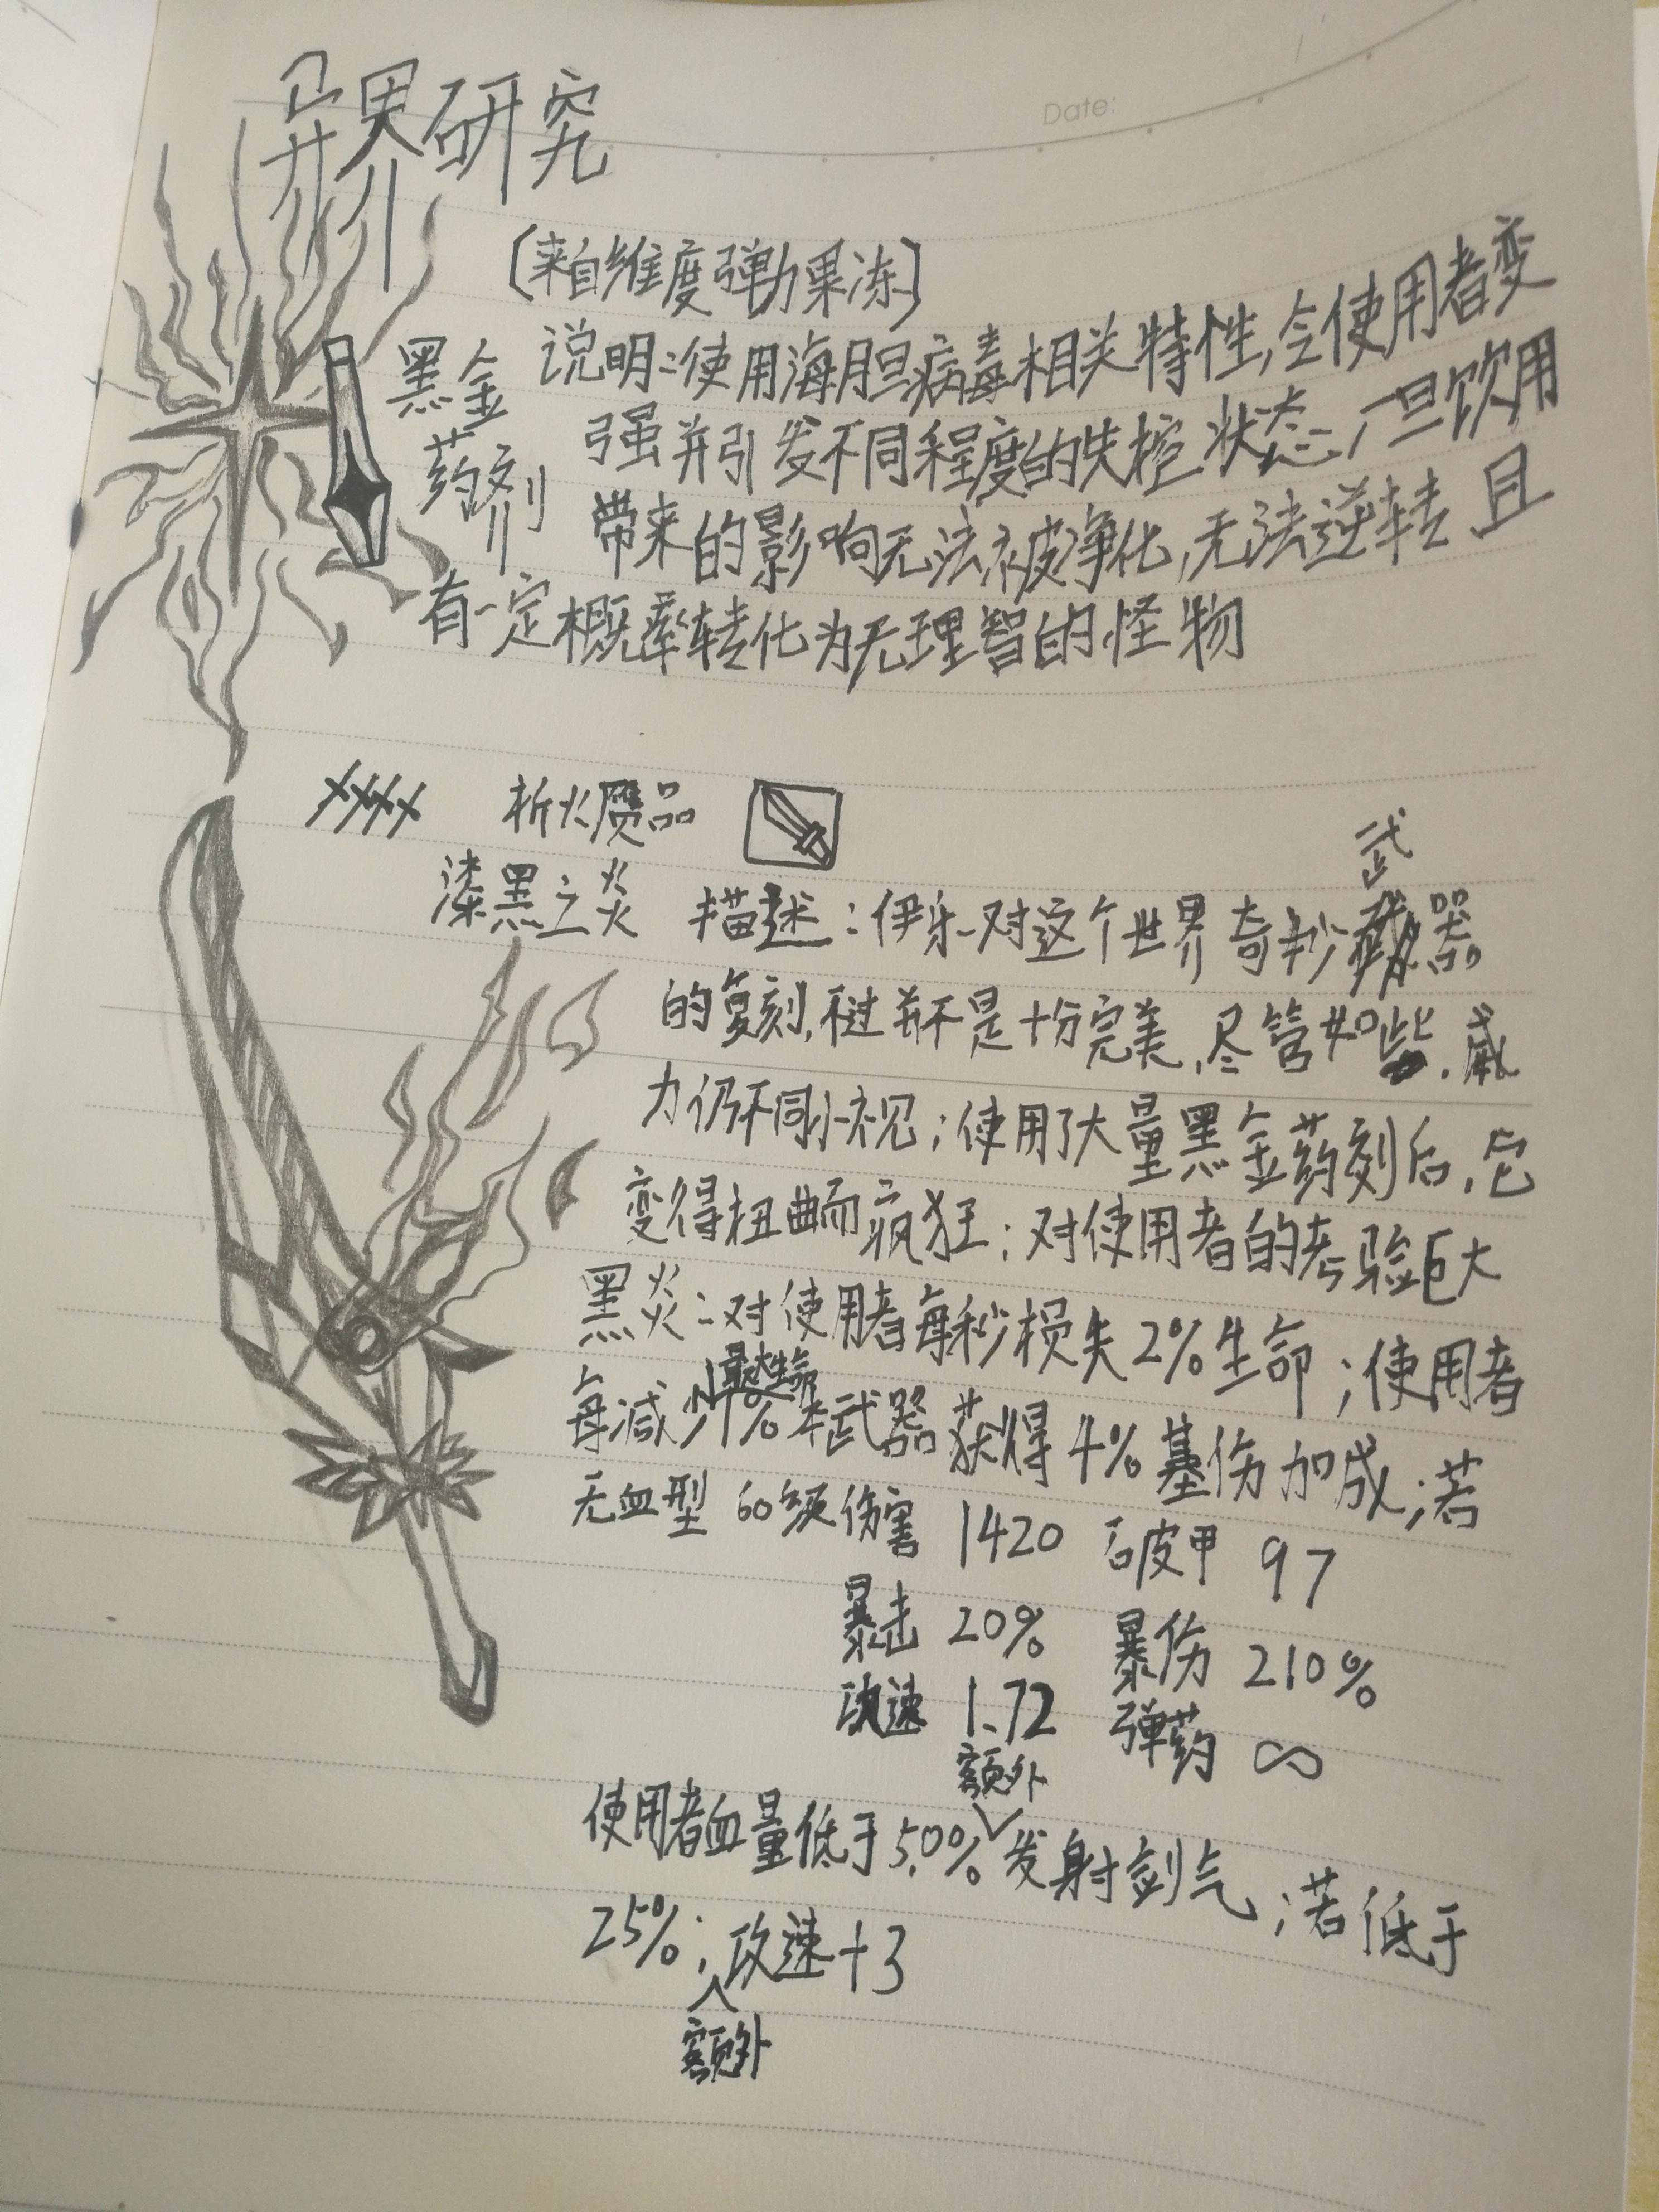 异界研究
Date:
(来自维度弹力果冻)
黑金
药剂
说明:使用海胆病毒相关特性,令使用者变
强并引发不同程度的失控状态,一旦饮用
带来的影响无法被净化,无法逆转且
有一定概率转化为无理智的怪物
析火赝品
漆黑之炎
描述:伊乐对这个世界奇妙武器
的复刻,不过并不是十份完美,尽管如此,威
力仍不同小视;使用了大量黑金药剂后,它
变得扭曲而疯狂;对使用者的考验巨大
黑炎:对使用者每秒损失2%生命;使用者
每减少1%最大生命本武器获得4%基伤加成;若
无血型 60级伤害 1420 破甲 97
暴击 20% 暴伤 210%
攻速 1.72 弹药 ∞
使用者血量低于50%额外发射剑气;若低于
25%;额外攻速+3